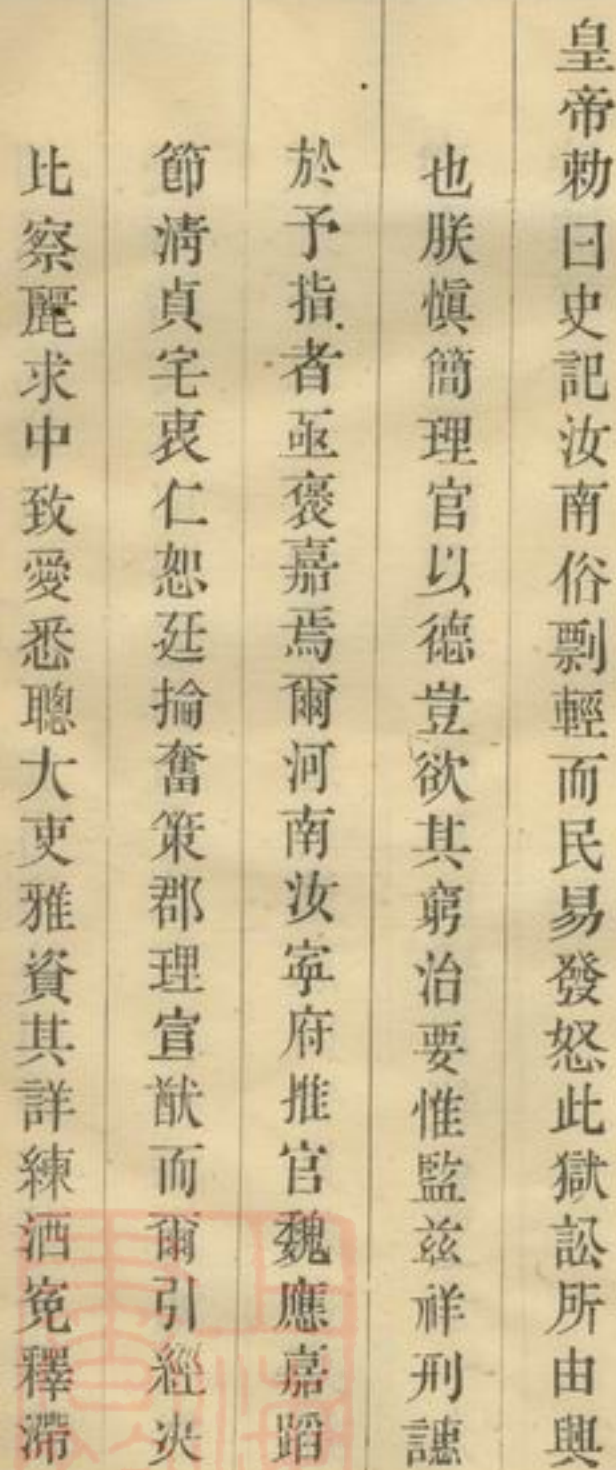 皇帝勅曰史記汝南俗剽輕而民易發怒此獄訟所由興
也朕愼簡理官以德豈欲其窮治要惟監茲祥刑譓
於予指者亟褒嘉焉爾河南汝寧府推官魏應嘉蹈
節清貞宅衷仁恕廷掄奮策郡理宣猷而爾引經決
比察麗求中致愛悉聰大吏雅資其詳練洒寃釋滯